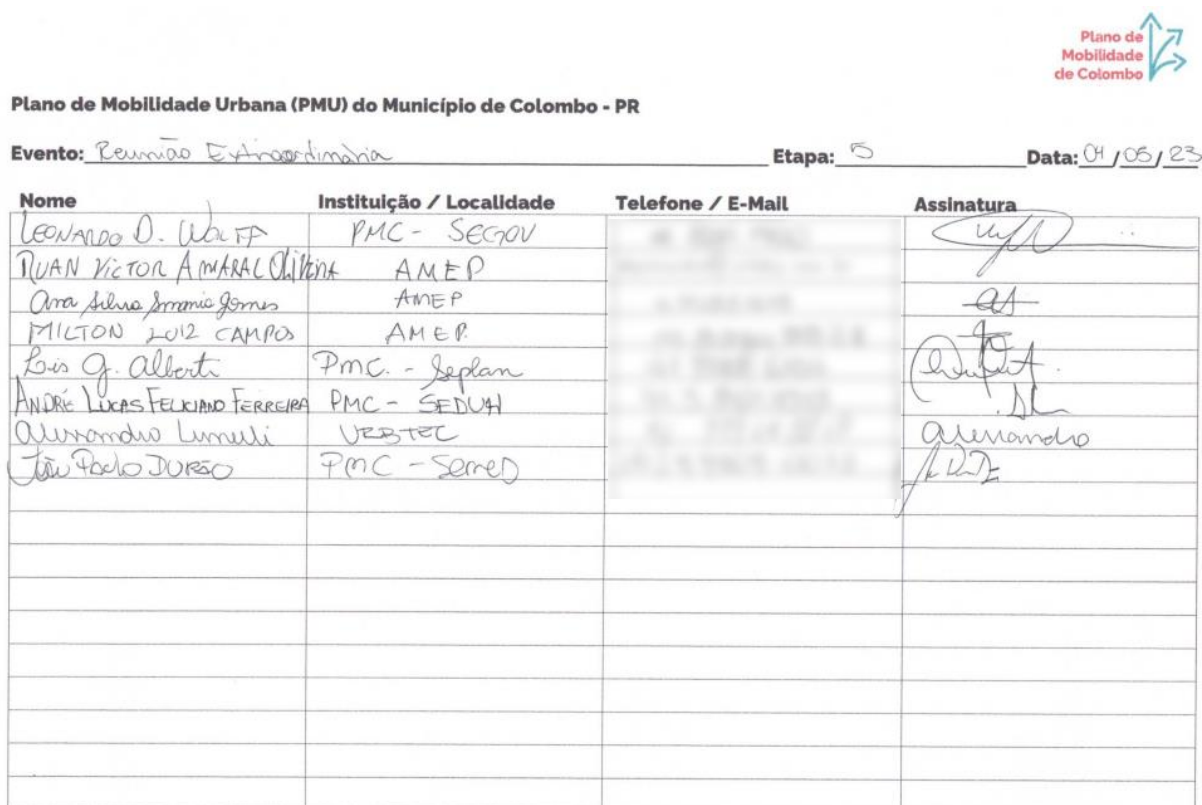 Plano de
Mobilidade
de Colombo
Plano de Mobilidade Urbana (PMU) do Município de Colombo - PR
Evento: Reunião Extraordinária Etapa: 5 Data: 04/05/23
Nome Instituição / Localidade Telefone / E-Mail Assinatura
LEONARDO D. WOLFF PMC - SEGOV
RUAN VICTOR AMARAL OliVEIRA AMEP
Ana Silvia Smania Gomes AMEP
MILTON LUIZ CAMPOS AMEP.
G. Alberti PMC. - Seplan
ANDRÉ LUCAS FELICIANO FERREIRA PMC - SEDUH
Alessandro URBTEC Alessandro
João Paulo DURÃO PMC - SemeD